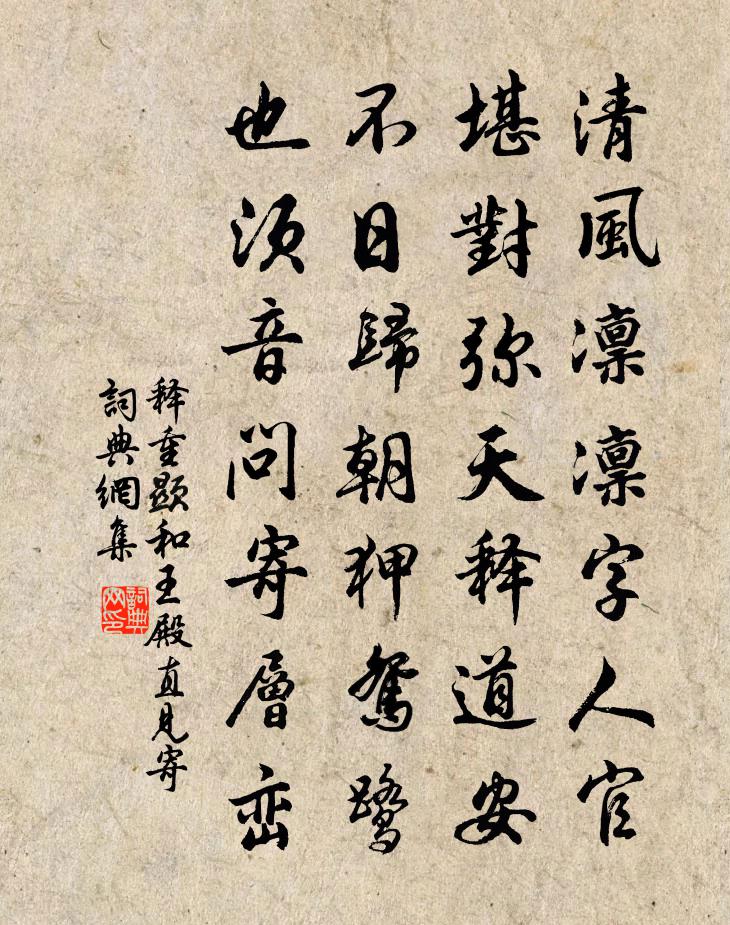 清風凛凛字人官
堪對弥天释道安
不日歸朝狎鴛鷺
也須音問寄層巒
释重顯和王殿直見寄
詞典網集
詞典网印